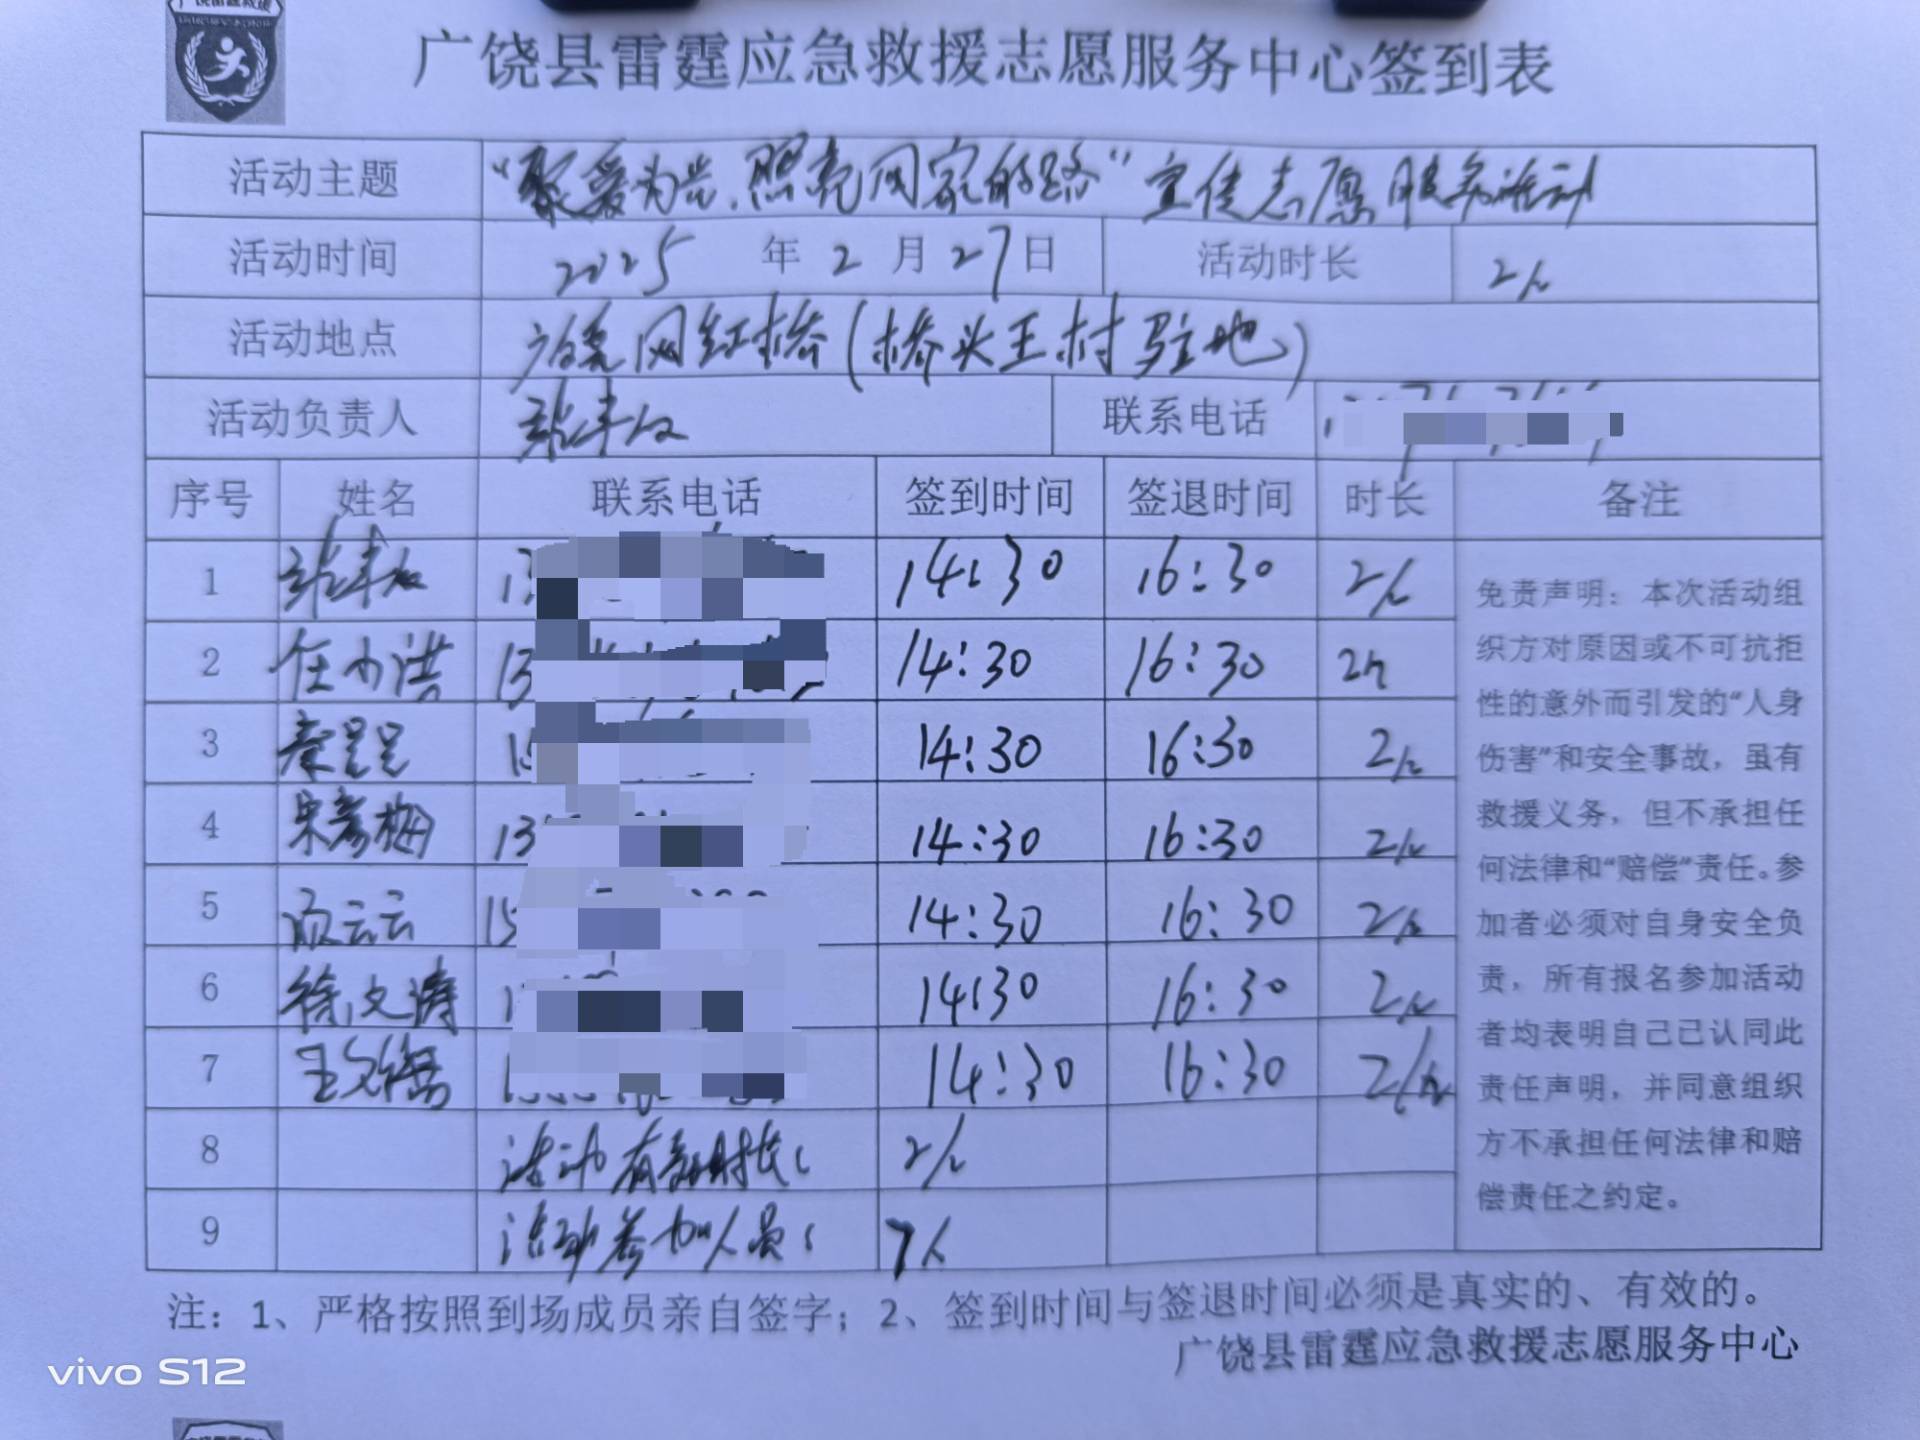 广饶县雷霆应急救援志愿服务中心签到表
活动主题 “聚爱为光,照亮回家的路”宣传志愿服务活动
活动时间 2025 年 2 月 27 日 活动时长 2h
活动地点 广饶网红桥(桥头王村驻地)
活动负责人 联系电话
序号 姓名 联系电话 签到时间 签退时间 时长 备注
1 13 14:30 16:30 2h
2 13 14:30 16:30 2h
3 秦 15 14:30 16:30 2h
4 宋彦梅 13 14:30 16:30 2h
5 云云 15 14:30 16:30 2h
6 徐文涛 1 14:30 16:30 2h
7 王 14:30 16:30 2h
8 活动有效时长: 2h
9 活动参加人员: 7人
免责声明:本次活动组
织方对原因或不可抗拒
性的意外而引发的“人身
伤害”和安全事故,虽有
救援义务,但不承担任
何法律和“赔偿”责任。参
加者必须对自身安全负
责,所有报名参加活动
者均表明自己已认同此
责任声明,并同意组织
方不承担任何法律和赔
偿责任之约定。
注:1、严格按照到场成员亲自签字;2、签到时间与签退时间必须是真实的、有效的。
广饶县雷霆应急救援志愿服务中心
vivo S12